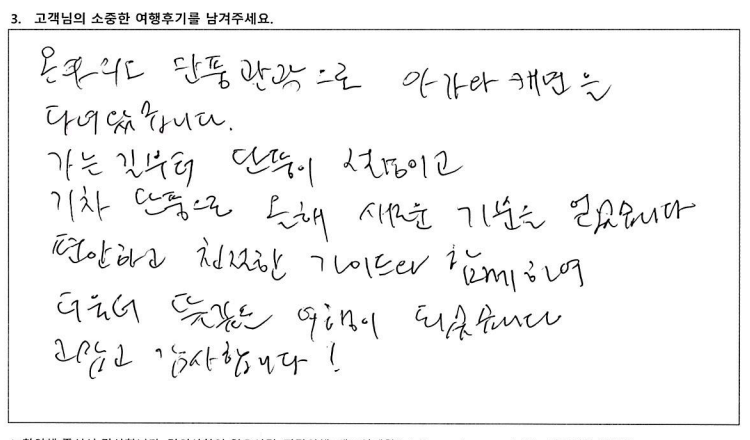 3. 고객님의 소중한 여행후기를 남겨주세요.
단풍관광으로 아가와 캐년을
다녀왔습니다.
가는 길부터 단풍이 절정이고
기차 단풍으로 올해 새로운 기분을 얻었습니다
편안하고 친절한 가이드와 함께하여
더욱더 뜻깊은 여행이 되었습니다
고맙고 감사합니다!